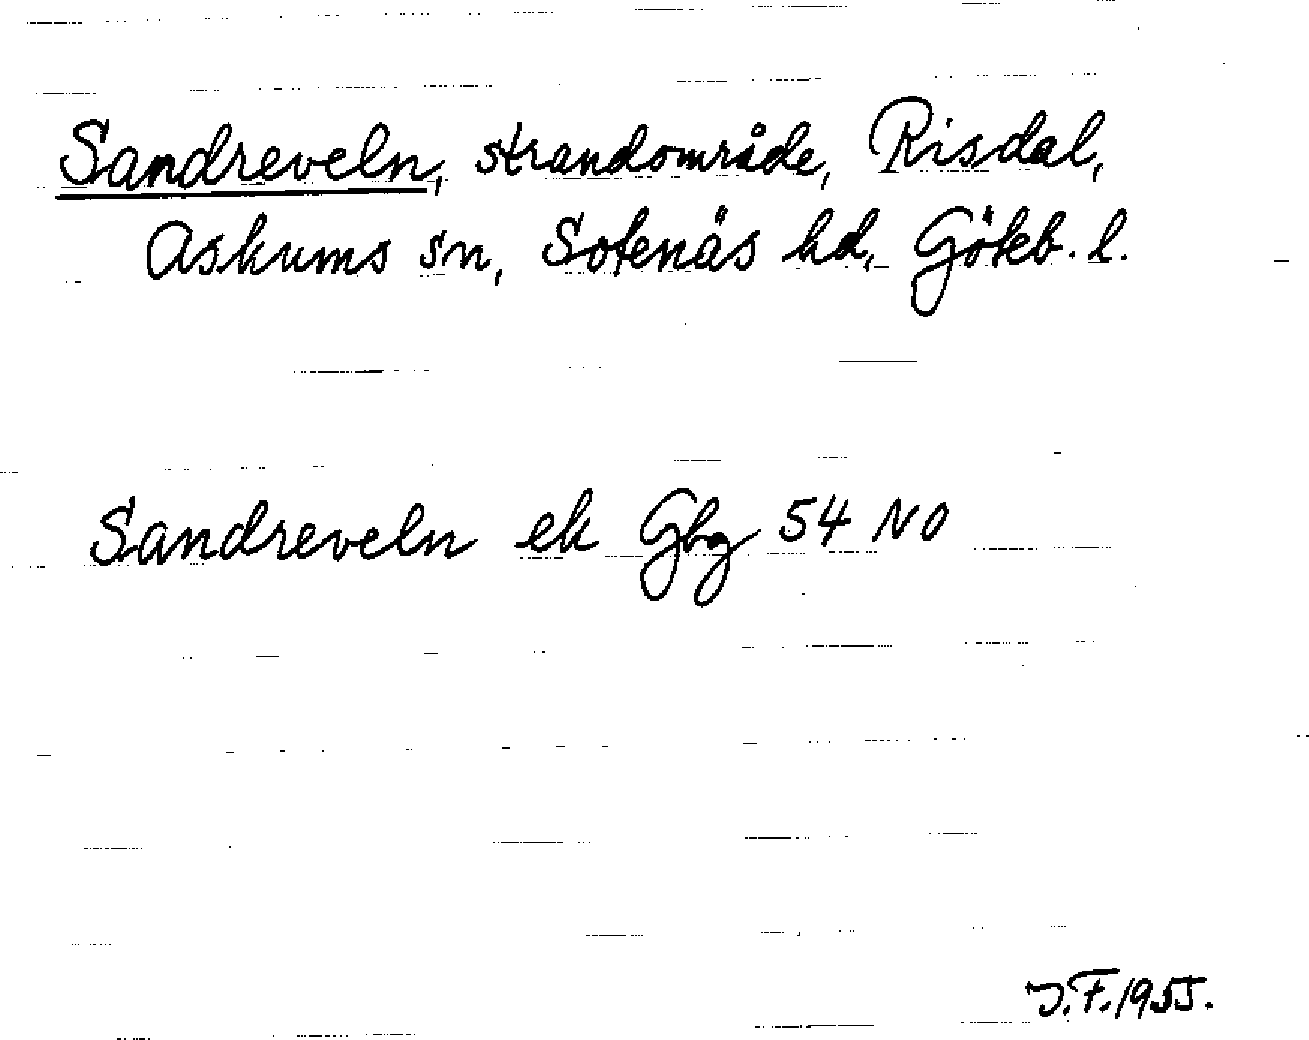 Sandreveln, strandområde, Risdal,
Askums sn, Sotenäs hd, Göteb. l.
Sandreveln ek Gbg 54 NO
J.F. 1955.